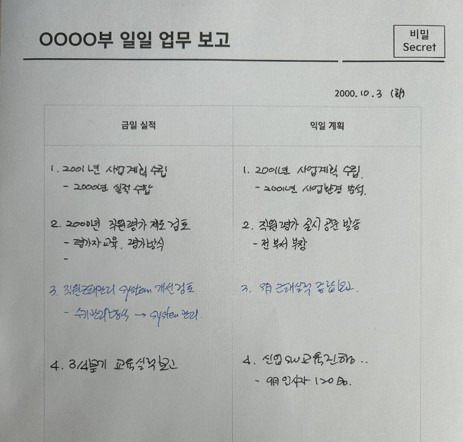 OOOO부 일일 업무 보고
비밀
Secret
2000.10.3 (화)
금일 실적
익일 계획
1. 2001년 사업계획 수립
- 2000년 실적 수합
2. 2000년 직원평가 제도 검토
- 평가자 교육, 평가방식
-
3. 직원근태관리 System 개선검토
- 수기관리방식 → System 관리
4. 3/4분기 교육실적보고
1. 2001년 사업계획 수립
- 2001년 사업환경 분석.
2. 직원평가 실시 공문 발송
- 전 부서 부장
3. 9월 근태실적 종합보고.
4. 신입SW교육진행..
- 9월 입사자 120명.